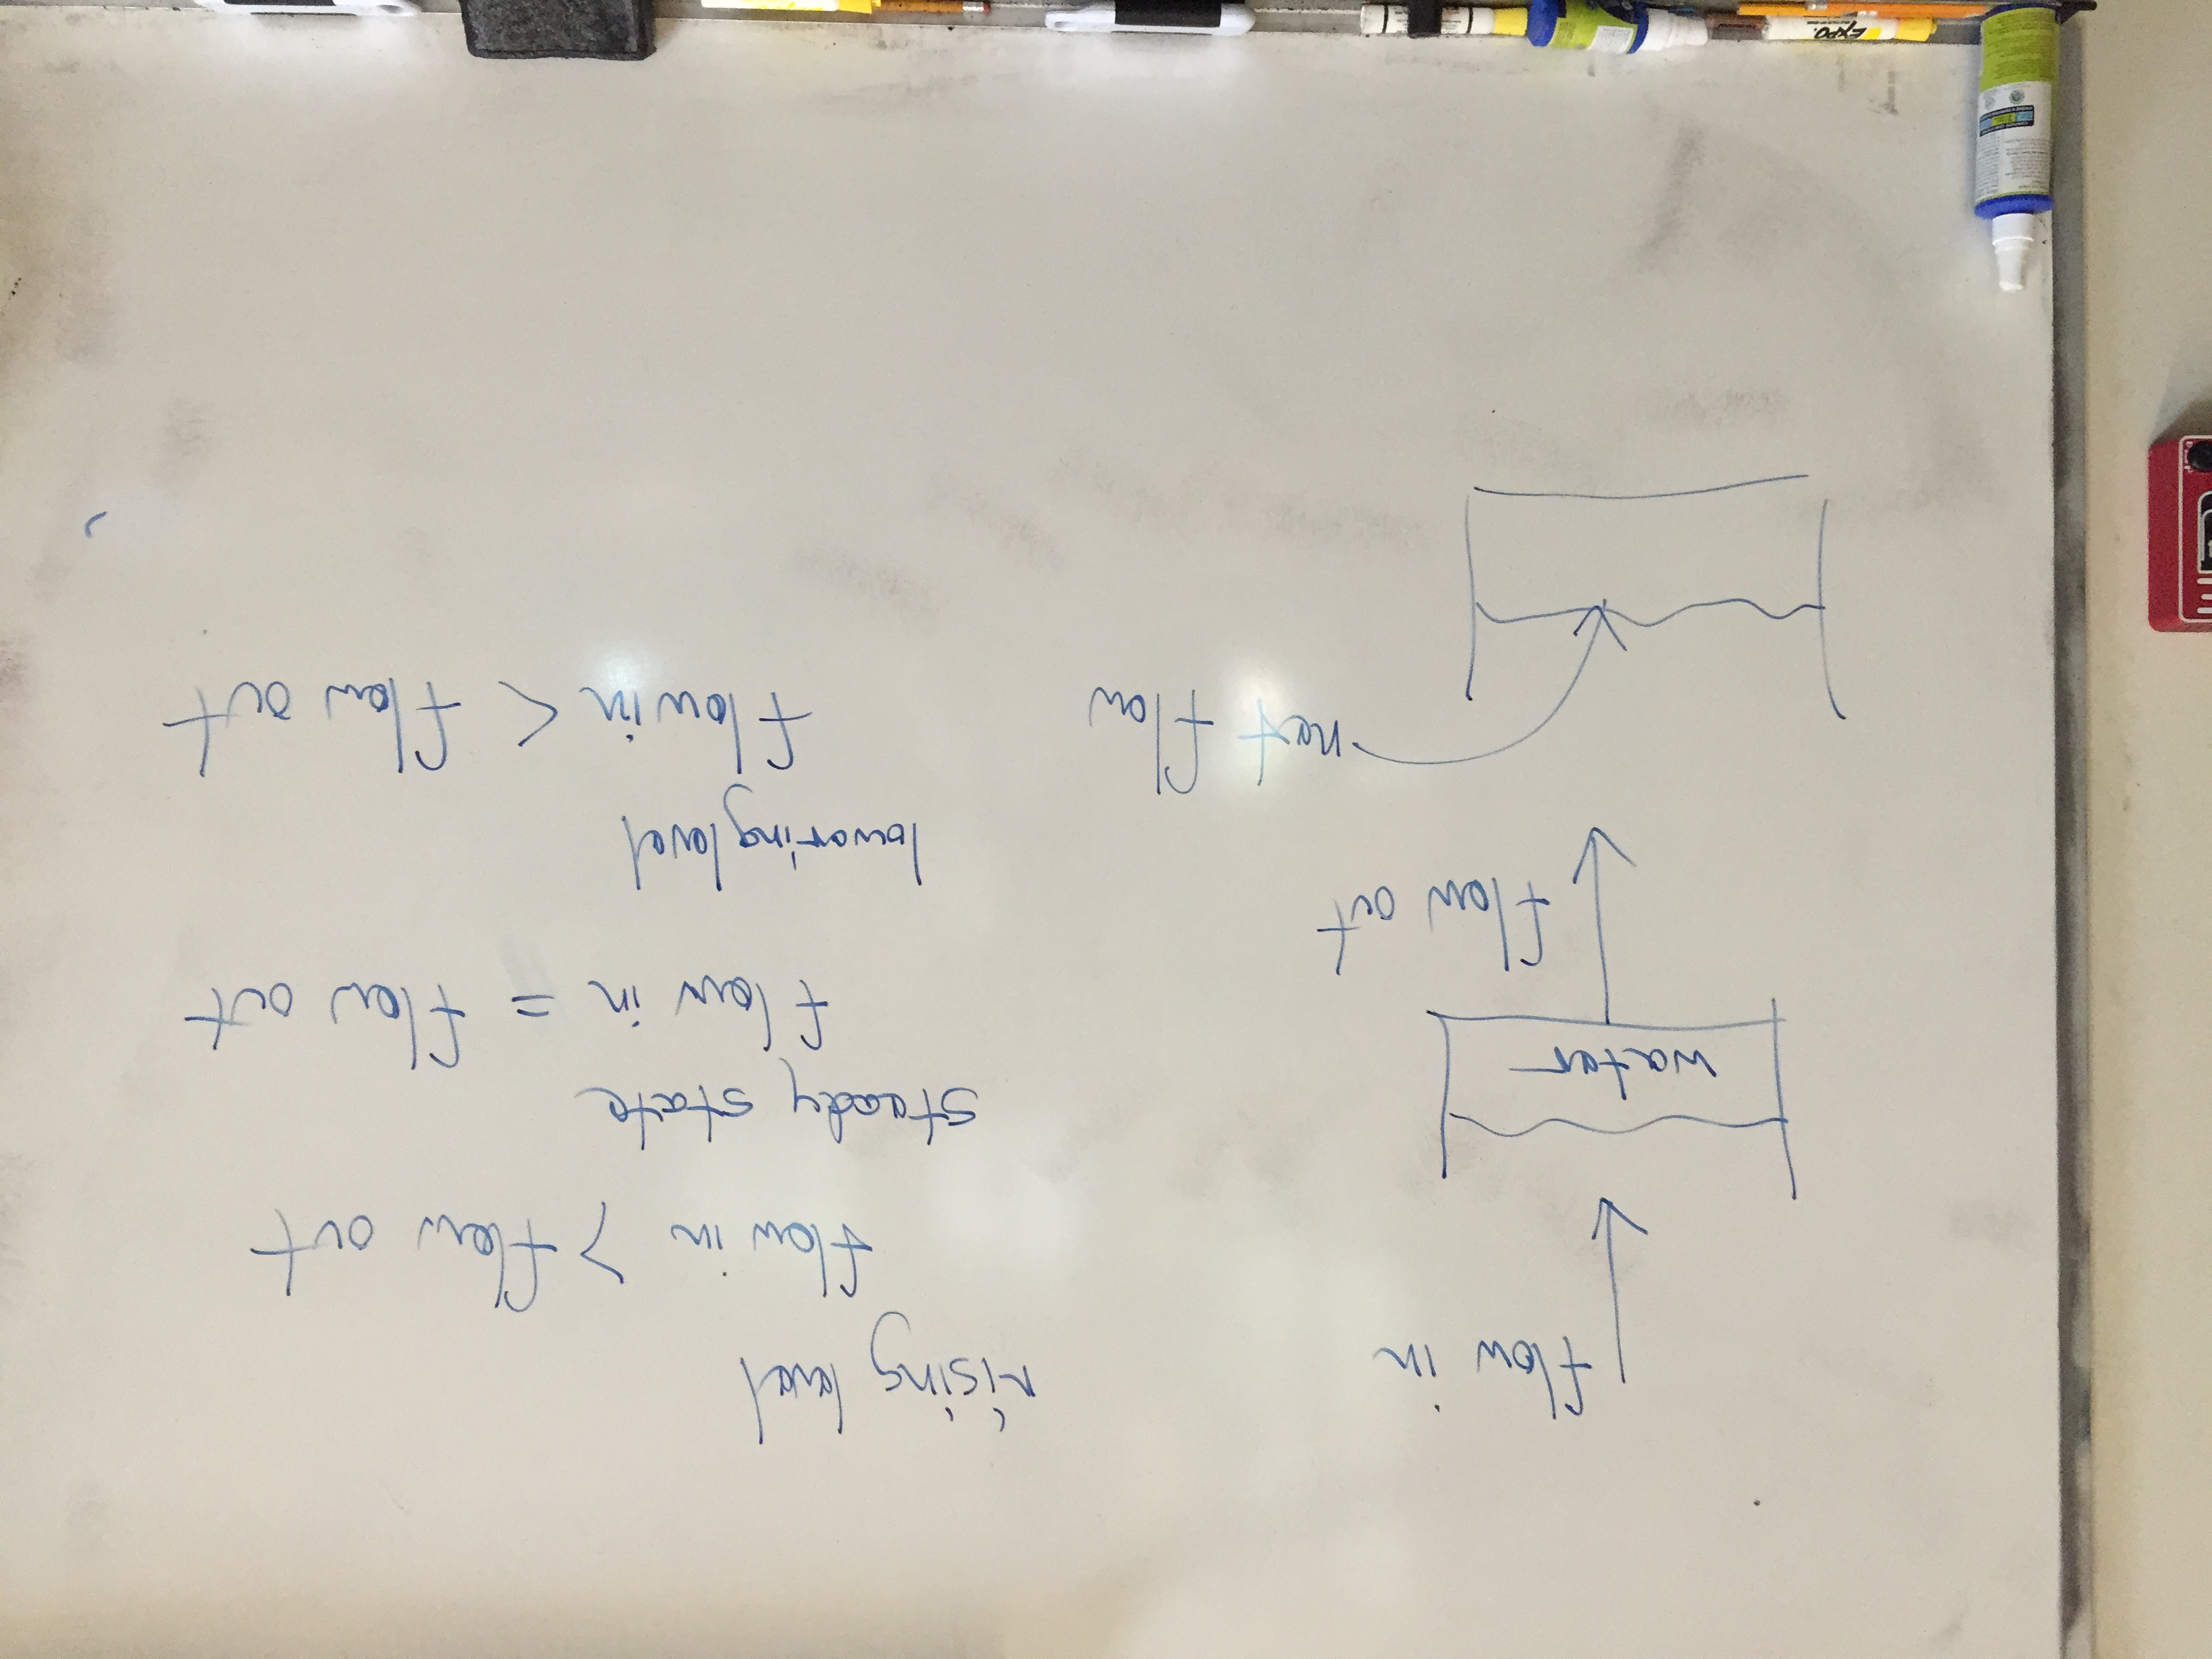 flow in
water
flow out
net flow
rising level
flow in > flow out
steady state
flow in = flow out
lowering level
flow in < flow out
EXPO.